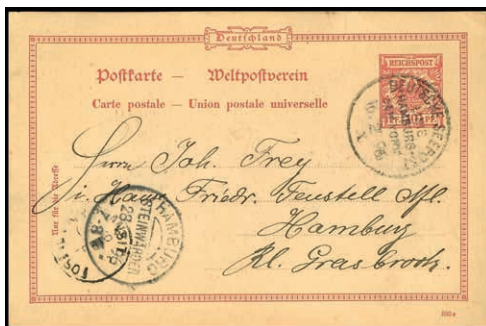 Deutschland
Postkarte — Weltpostverein
Carte postale — Union postale universelle
REICHSPOST
DEUTSCHE SEEPOST
HAMBURG
Nur für die Adresse
Herrn Joh. Frey
i. Haus Friedr. Feustell
Hamburg
Kl. Grasbrook.
HAMBURG
STEINWÄRDER